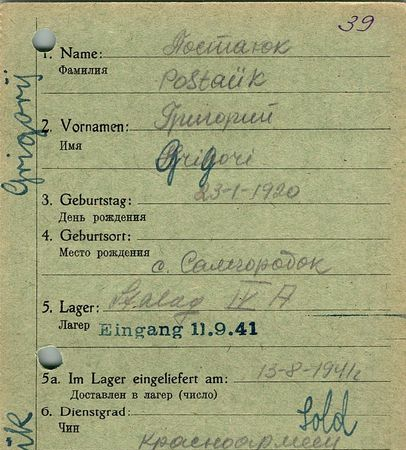 39
1. Name: Постаюк
Фамилия
Postaük
2. Vornamen: Григорий
Имя
Grigori
3. Geburtstag: 23-1-1920
День рождения
4. Geburtsort:
Место рождения
с. Самгородок
5. Lager: Stalag IV A
Лагер Eingang 11.9.41
5a. Im Lager eingeliefert am: 13-8-1941г
Доставлен в лагер (число)
6. Dienstgrad: Sold
Чин
Красноармеец
Grigorij
ük